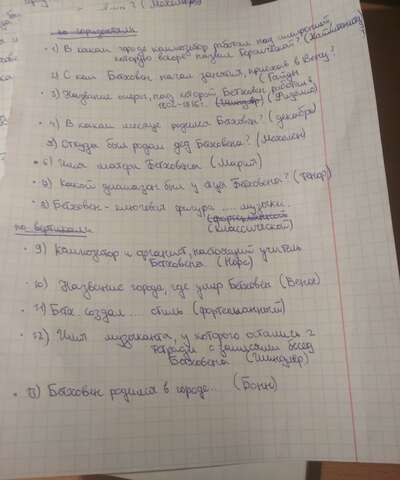 по горизонтали
1) В каком городе композитор работал над симфонией,
которую вскоре назвал Героической? (Хайлигенштадт)
2) С кем Бетховен начал занятия, приехав в Вену?
(Гайдн)
3) Название оперы, над которой Бетховен работал в
(Фиделио)
4) В каком месяце родился Бетховен? (декабрь)
5) Откуда был родом дед Бетховена? (Мехелен)
6) Имя матери Бетховена (Мария)
7) Какой диапазон был у отца Бетховена? (тенор)
8) Бетховен - ключевая фигура .... музыки.
(классической)
по вертикали
9) Композитор и органист, настоящий учитель
Бетховена (Нефе)
10) Название города, где умер Бетховен (Вена)
11) Бетх создал ... стиль (фортепианный)
12) Имя музыканта, у которого остались 2
тетради с записями бесед
Бетховена (Шиндлер)
13) Бетховен родился в городе... (Бонн)